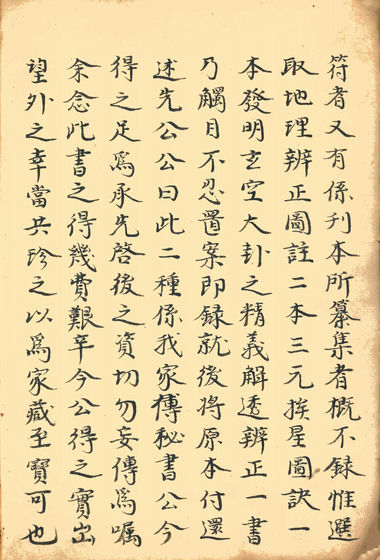 符者又有係刋本所纂集者概不錄惟選
取地理辨正圖註二本三元挨星圖訣一
本發明玄空大卦之精義解透辨正一書
乃觸目不忍置案即録就後將原本付還
述先公公曰此二種係我家傳秘書公今
得之足爲承先啓後之資切勿妄傳爲嘱
余念此書之得幾費艱辛今公得之實出
望外之幸當共珍之以爲家藏至寶可也